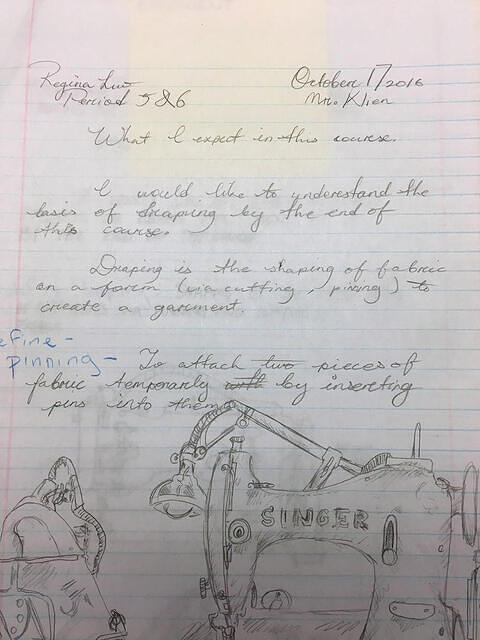 Regina Luo
October 17 2016
Period 5&6
Mr. Klien
What I expect in this course.
I would like to understand the
basis of draping by the end of
this course.
Draping is the shaping of fabric
on a form (via cutting, pinning) to
create a garment.
efine -
pinning - To attach two pieces of
fabric temporarly with by inserting
pins into them
SINGER